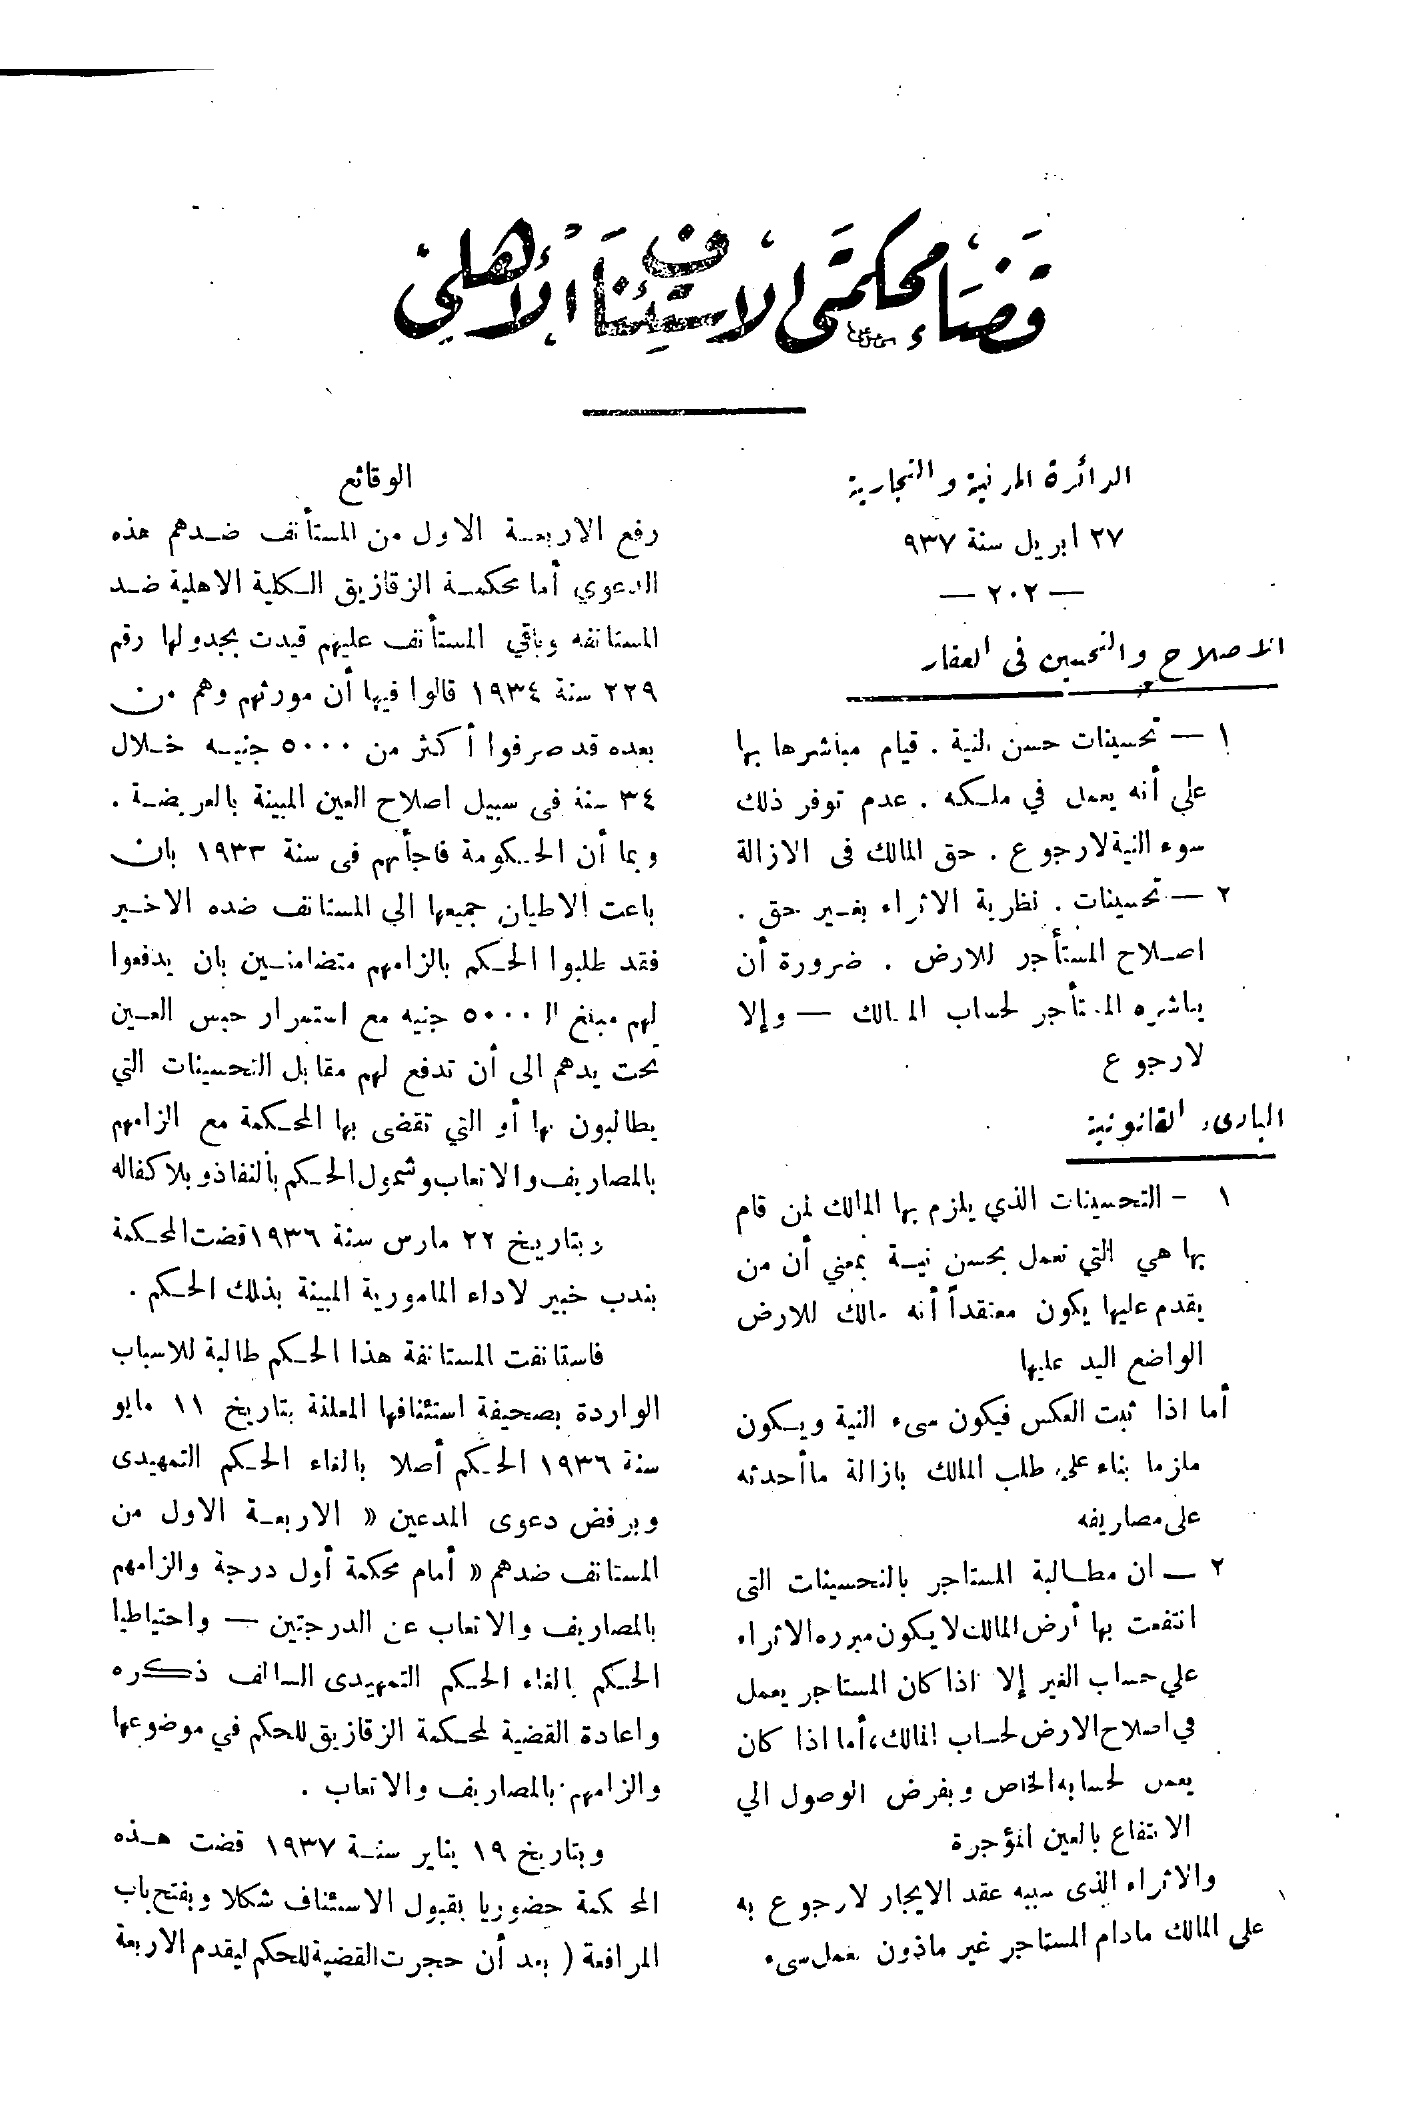 قضاء محكمتى الاستئناف الأهلى
الدائرة المدنية والتجارية
٢٧ ابريل سنة ٩٣٧
— ٢٠٢ —
الاصلاح والتحسين فى العقار
١ — تحسينات حسن النية . قيام مباشرها بها
على أنه يعمل في ملكه . عدم توفر ذلك
سوء النية لا رجوع . حق المالك فى الازالة
٢ — تحسينات . نظرية الاثراء بغير حق .
اصلاح المستأجر للارض . ضرورة أن
يباشره المستأجر لحساب المالك — وإلا
لا رجوع
المبادىء القانونية
١ - التحسينات الذي يلزم بها المالك لمن قام
بها هي التي تعمل بحسن نية بمعني أن من
يقدم عليها يكون معتقداً أنه مالك للارض
الواضع اليد عليها
أما اذا ثبت العكس فيكون سىء النية ويكون
ملزما بناء على طلب المالك بازالة ما أحدثه
على مصاريفه
٢ — ان مطالبة المستاجر بالتحسينات التى
انتفعت بها أرض المالك لا يكون مبرره الاثراء
علي حساب الغير إلا اذا كان المستاجر يعمل
في اصلاح الارض لحساب المالك، أما اذا كان
يعمل لحسابه الخاص وبفرض الوصول الي
الانتفاع بالعين المؤجرة
والاثراء الذى سببه عقد الايجار لا رجوع به
على المالك مادام المستاجر غير ماذون بعمل سىء
الوقائع
رفع الاربعة الاول من المستأنف ضدهم هذه
الدعوي أما محكمة الزقازيق الكلية الاهلية ضد
المستانفه وباقي المستأنف عليهم قيدت بجدولها رقم
٢٢٩ سنة ١٩٣٤ قالوا فيها أن مورثهم وهم من
بعده قد صرفوا أكثر من ٥٠٠٠ جنيه خلال
٣٤ سنة فى سبيل اصلاح العين المبينة بالعريضة .
وبما أن الحكومة فاجأتهم فى سنة ١٩٣٣ بان
باعت الاطيان جميعها الي المستانف ضده الاخير
فقد طلبوا الحكم بالزامهم متضامنين بان يدفعوا
لهم مبلغ ال ٥٠٠٠ جنيه مع استمرار حبس العين
تحت يدهم الى أن تدفع لهم مقابل التحسينات التي
يطالبون بها أو التي تقضى بها المحكمة مع الزامهم
بالمصاريف والاتعاب وشمول الحكم بالنفاذ وبلا كفاله
وبتاريخ ٢٢ مارس سنة ١٩٣٦ قضت المحكمة
بندب خبير لاداء المامورية المبينة بذلك الحكم .
فاستانفت المستانفة هذا الحكم طالبة للاسباب
الواردة بصحيفة استئنافها المعلنة بتاريخ ١١ مايو
سنة ١٩٣٦ الحكم أصلا بالغاء الحكم التمهيدى
وبرفض دعوى المدعين « الاربعة الاول من
المستانف ضدهم » أمام محكمة أول درجة والزامهم
بالمصاريف والاتعاب عن الدرجتين — واحتياطيا
الحكم بالغاء الحكم التمهيدى السالف ذكره
واعادة القضية لمحكمة الزقازيق للحكم في موضوعها
والزامهم بالمصاريف والاتعاب .
وبتاريخ ١٩ يناير سنة ١٩٣٧ قضت هذه
المحكمة حضوريا بقبول الاستئناف شكلا وبفتح باب
المرافعة ( بعد أن حجرت القضية للحكم ليقدم الاربعة